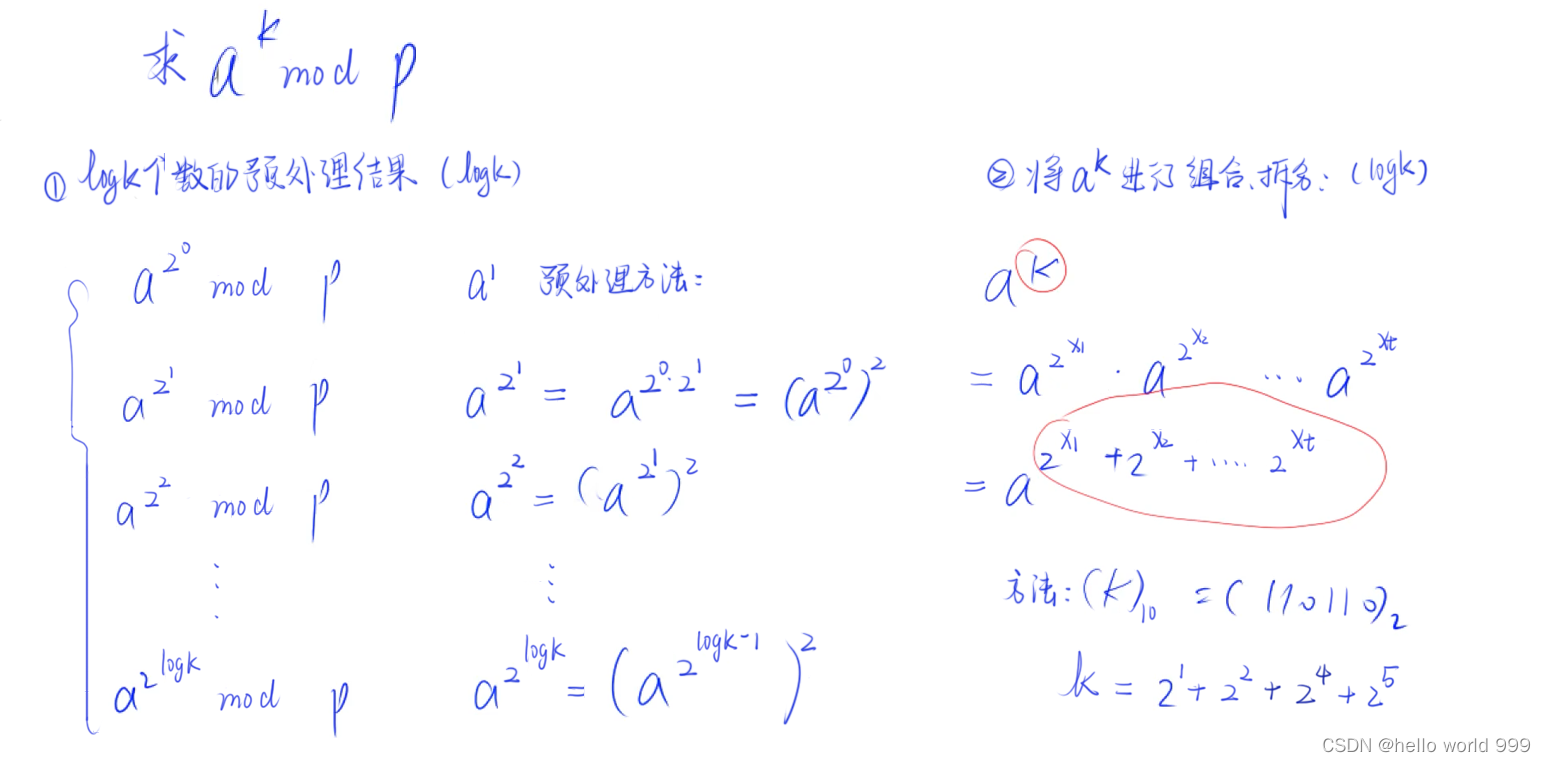 求 a^k mod p
① logk个数的预处理结果 (logk)
a^{2^0} mod p  a^1 预处理方法:
a^{2^1} mod p  a^{2^1} = a^{2^0·2^1} = (a^{2^0})^2
a^{2^2} mod p  a^{2^2} = (a^{2^1})^2
⋮  ⋮
a^{2^{logk}} mod p  a^{2^{logk}} = (a^{2^{logk-1}})^2
② 将a^k进行组合、拆分: (logk)
a^k
= a^{2^{x1}} · a^{2^{x2}} ... a^{2^{xt}}
= a^{2^{x1} + 2^{x2} + .... 2^{xt}}
方法: (k)_{10} = (110110)_2
k = 2^1 + 2^2 + 2^4 + 2^5
CSDN @hello world 999